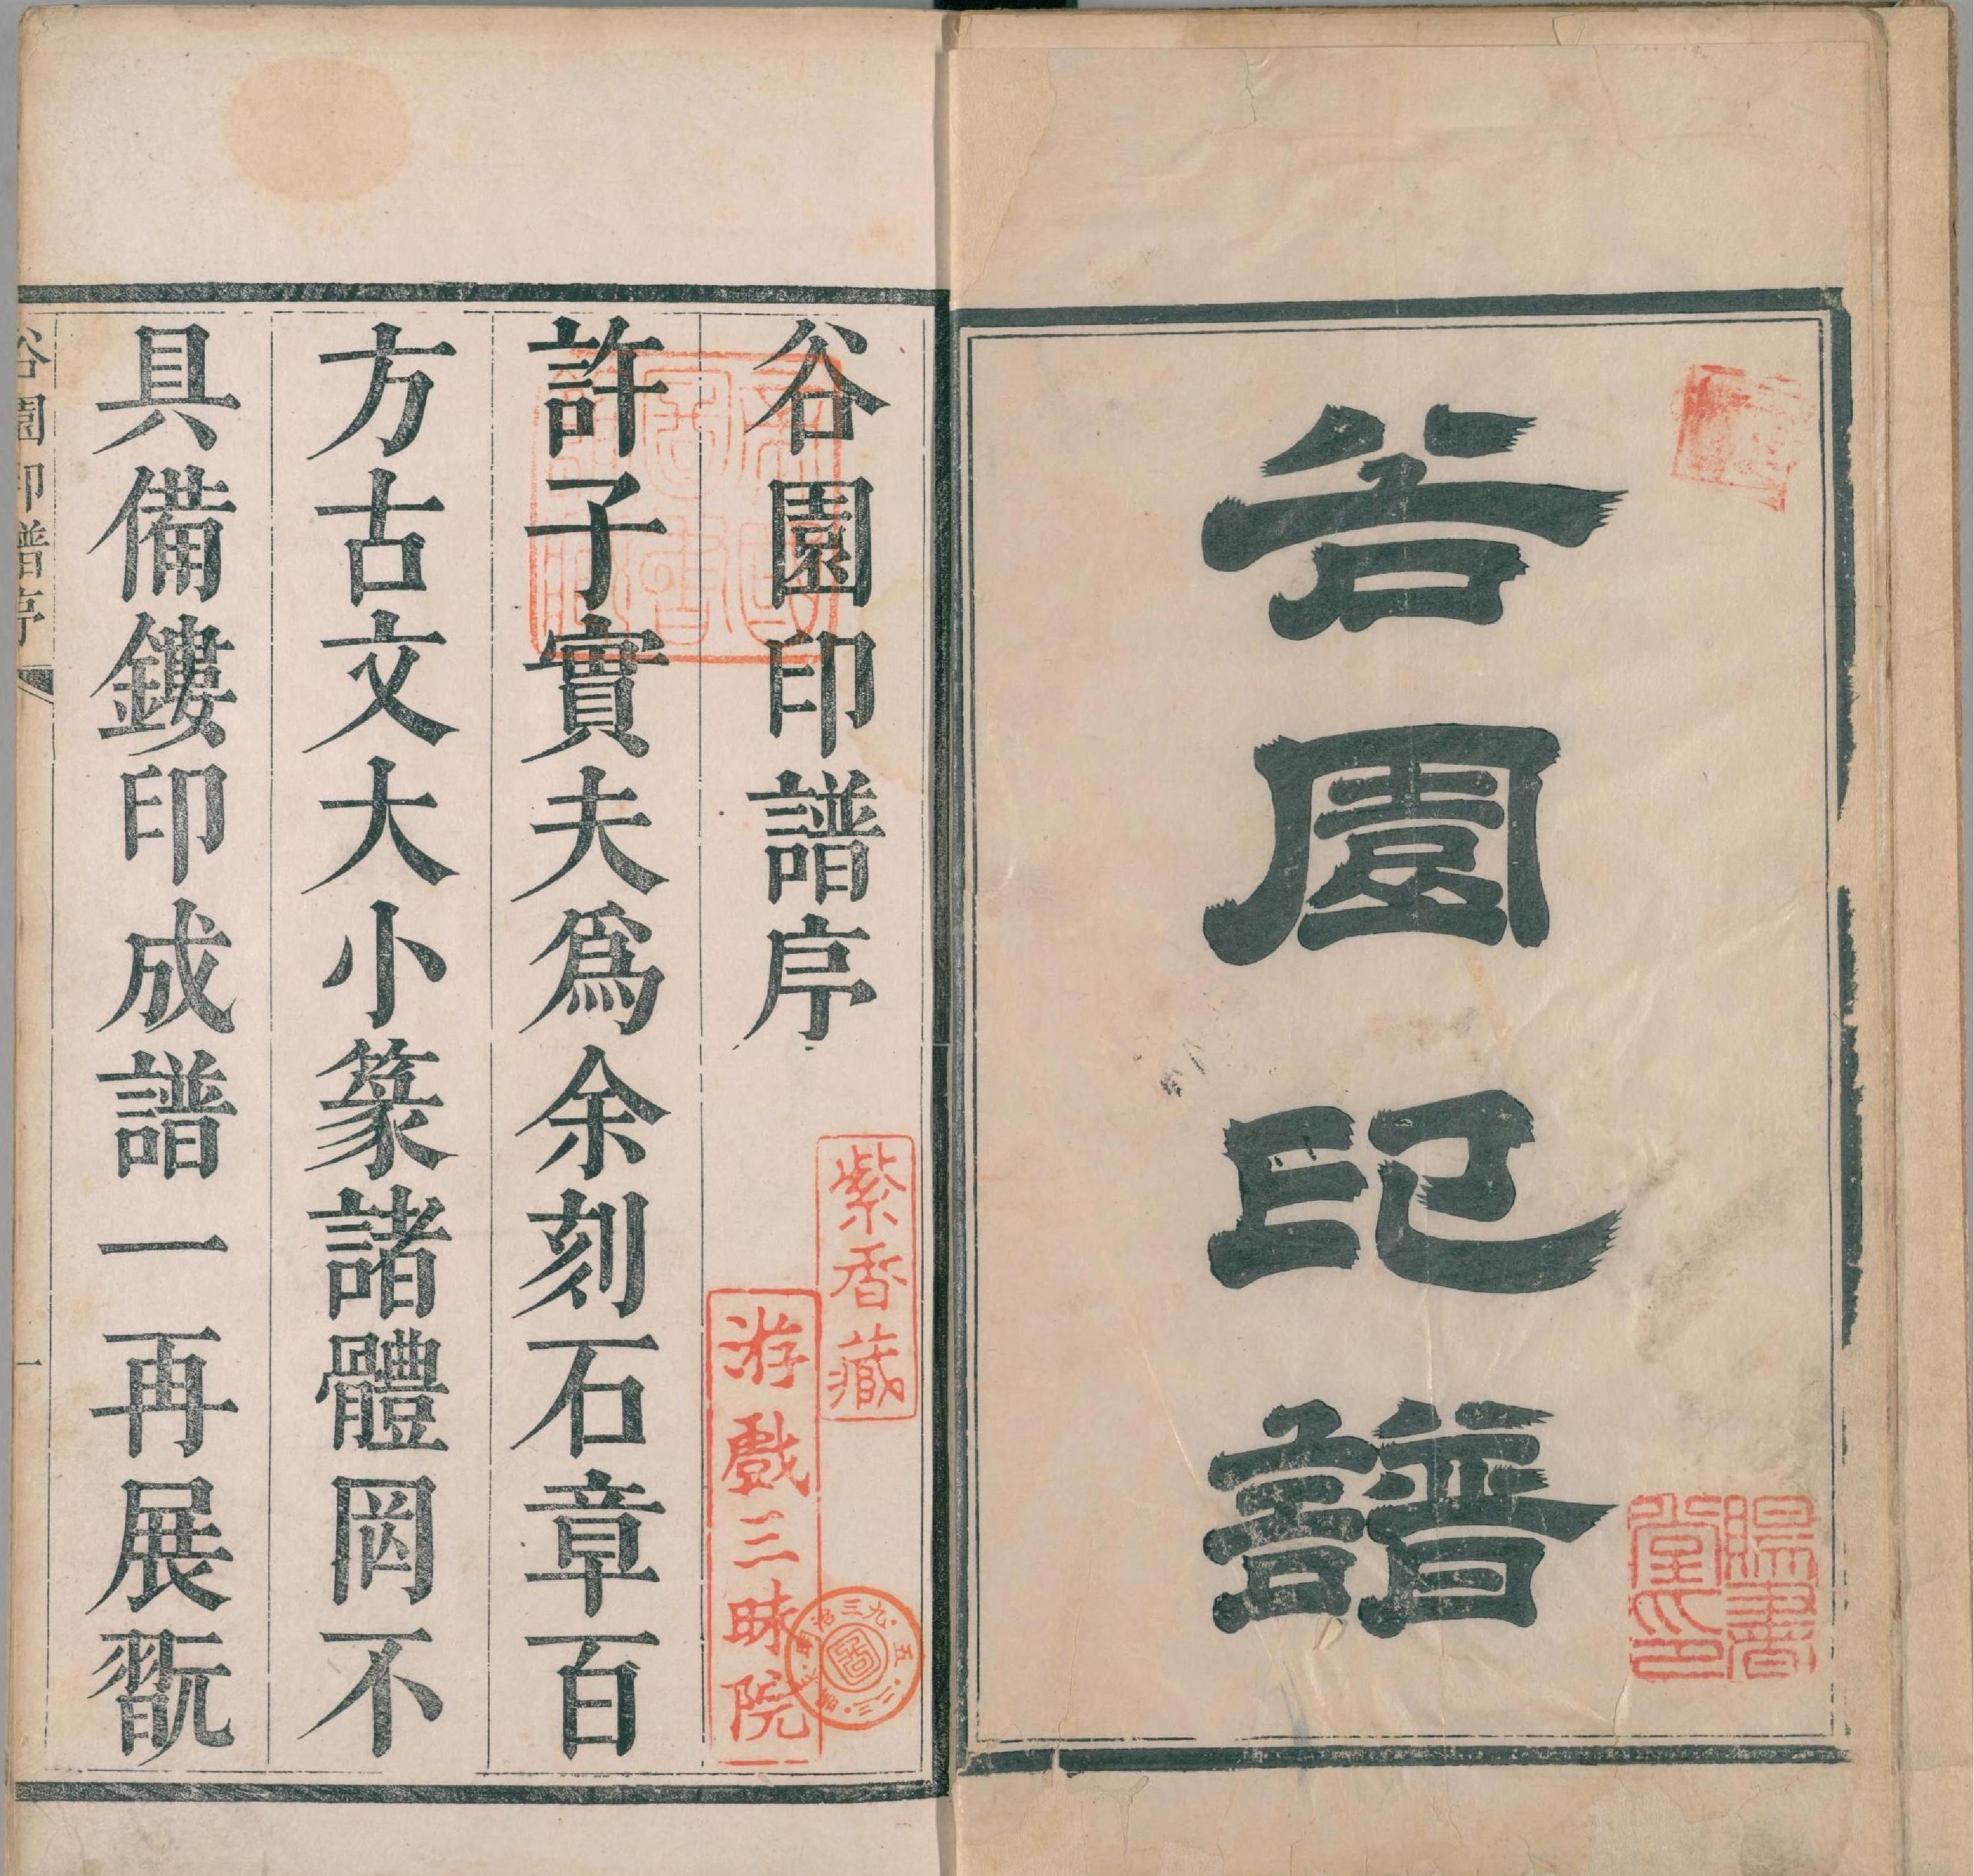 谷園印譜
賜書堂印
谷園印譜序
紫香藏
游戲三昧院
許子實夫爲余刻石章百
方古文大小篆諸體罔不
具備鏤印成譜一再展翫
谷園印譜序
一